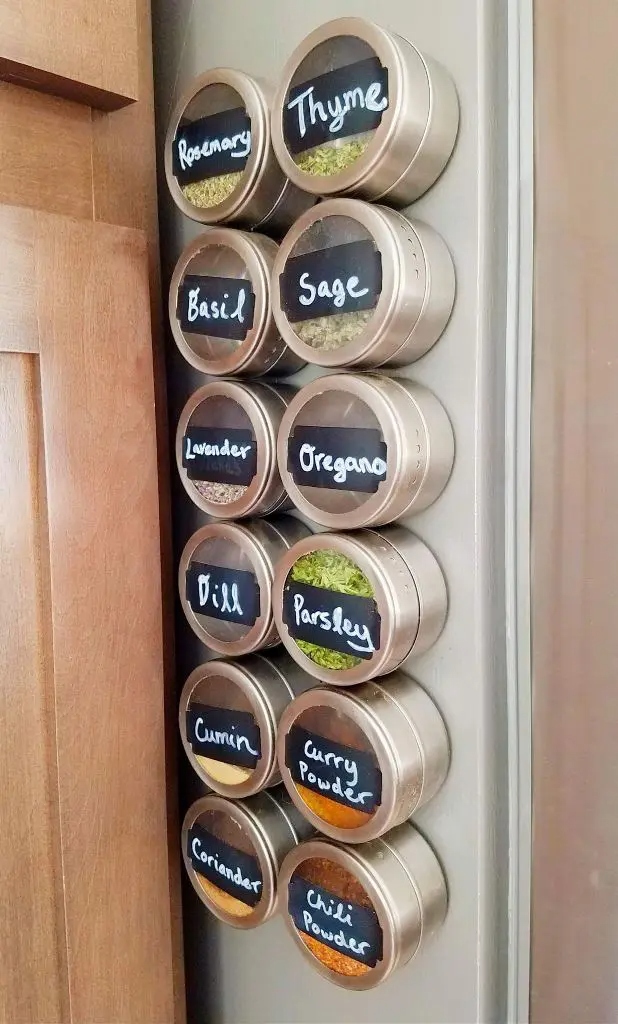 Rosemary
Thyme
Basil
Sage
Lavender
Oregano
Dill
Parsley
Cumin
Curry
Powder
Coriander
Chili
Powder